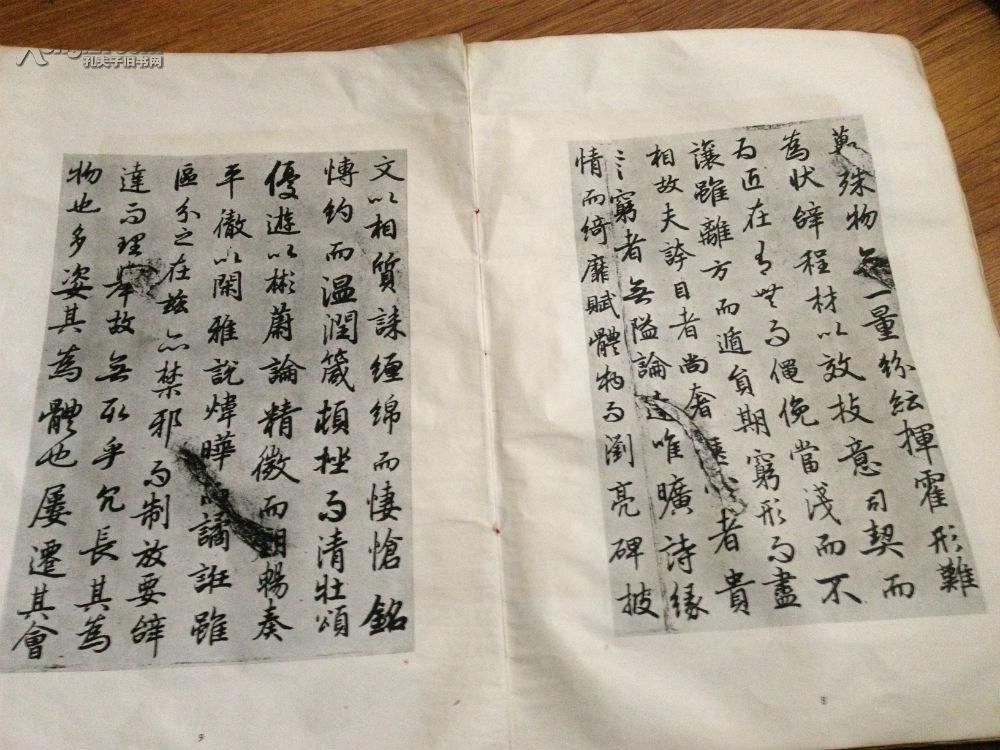 孔夫子旧书网
萬殊物無一量紛紜揮霍形難
為狀辭程材以效技意司契而
匠在有無而僶俛當淺而不
讓雖離方而遁員期窮形而盡
相故夫誇目者尚奢愜心者貴
窮者無隘論達唯曠詩緣
情而綺靡賦體物而瀏亮碑披
文以相質誄纏綿而悽愴銘
博約而温潤箴頓挫而清壯頌
優遊以彬蔚論精微而朗暢奏
平徹以閑雅說煒曄而譎誑雖
區分之在茲亦禁邪而制放要辭
達而理舉故無取乎冗長其為
物也多姿其為體也屢遷其會